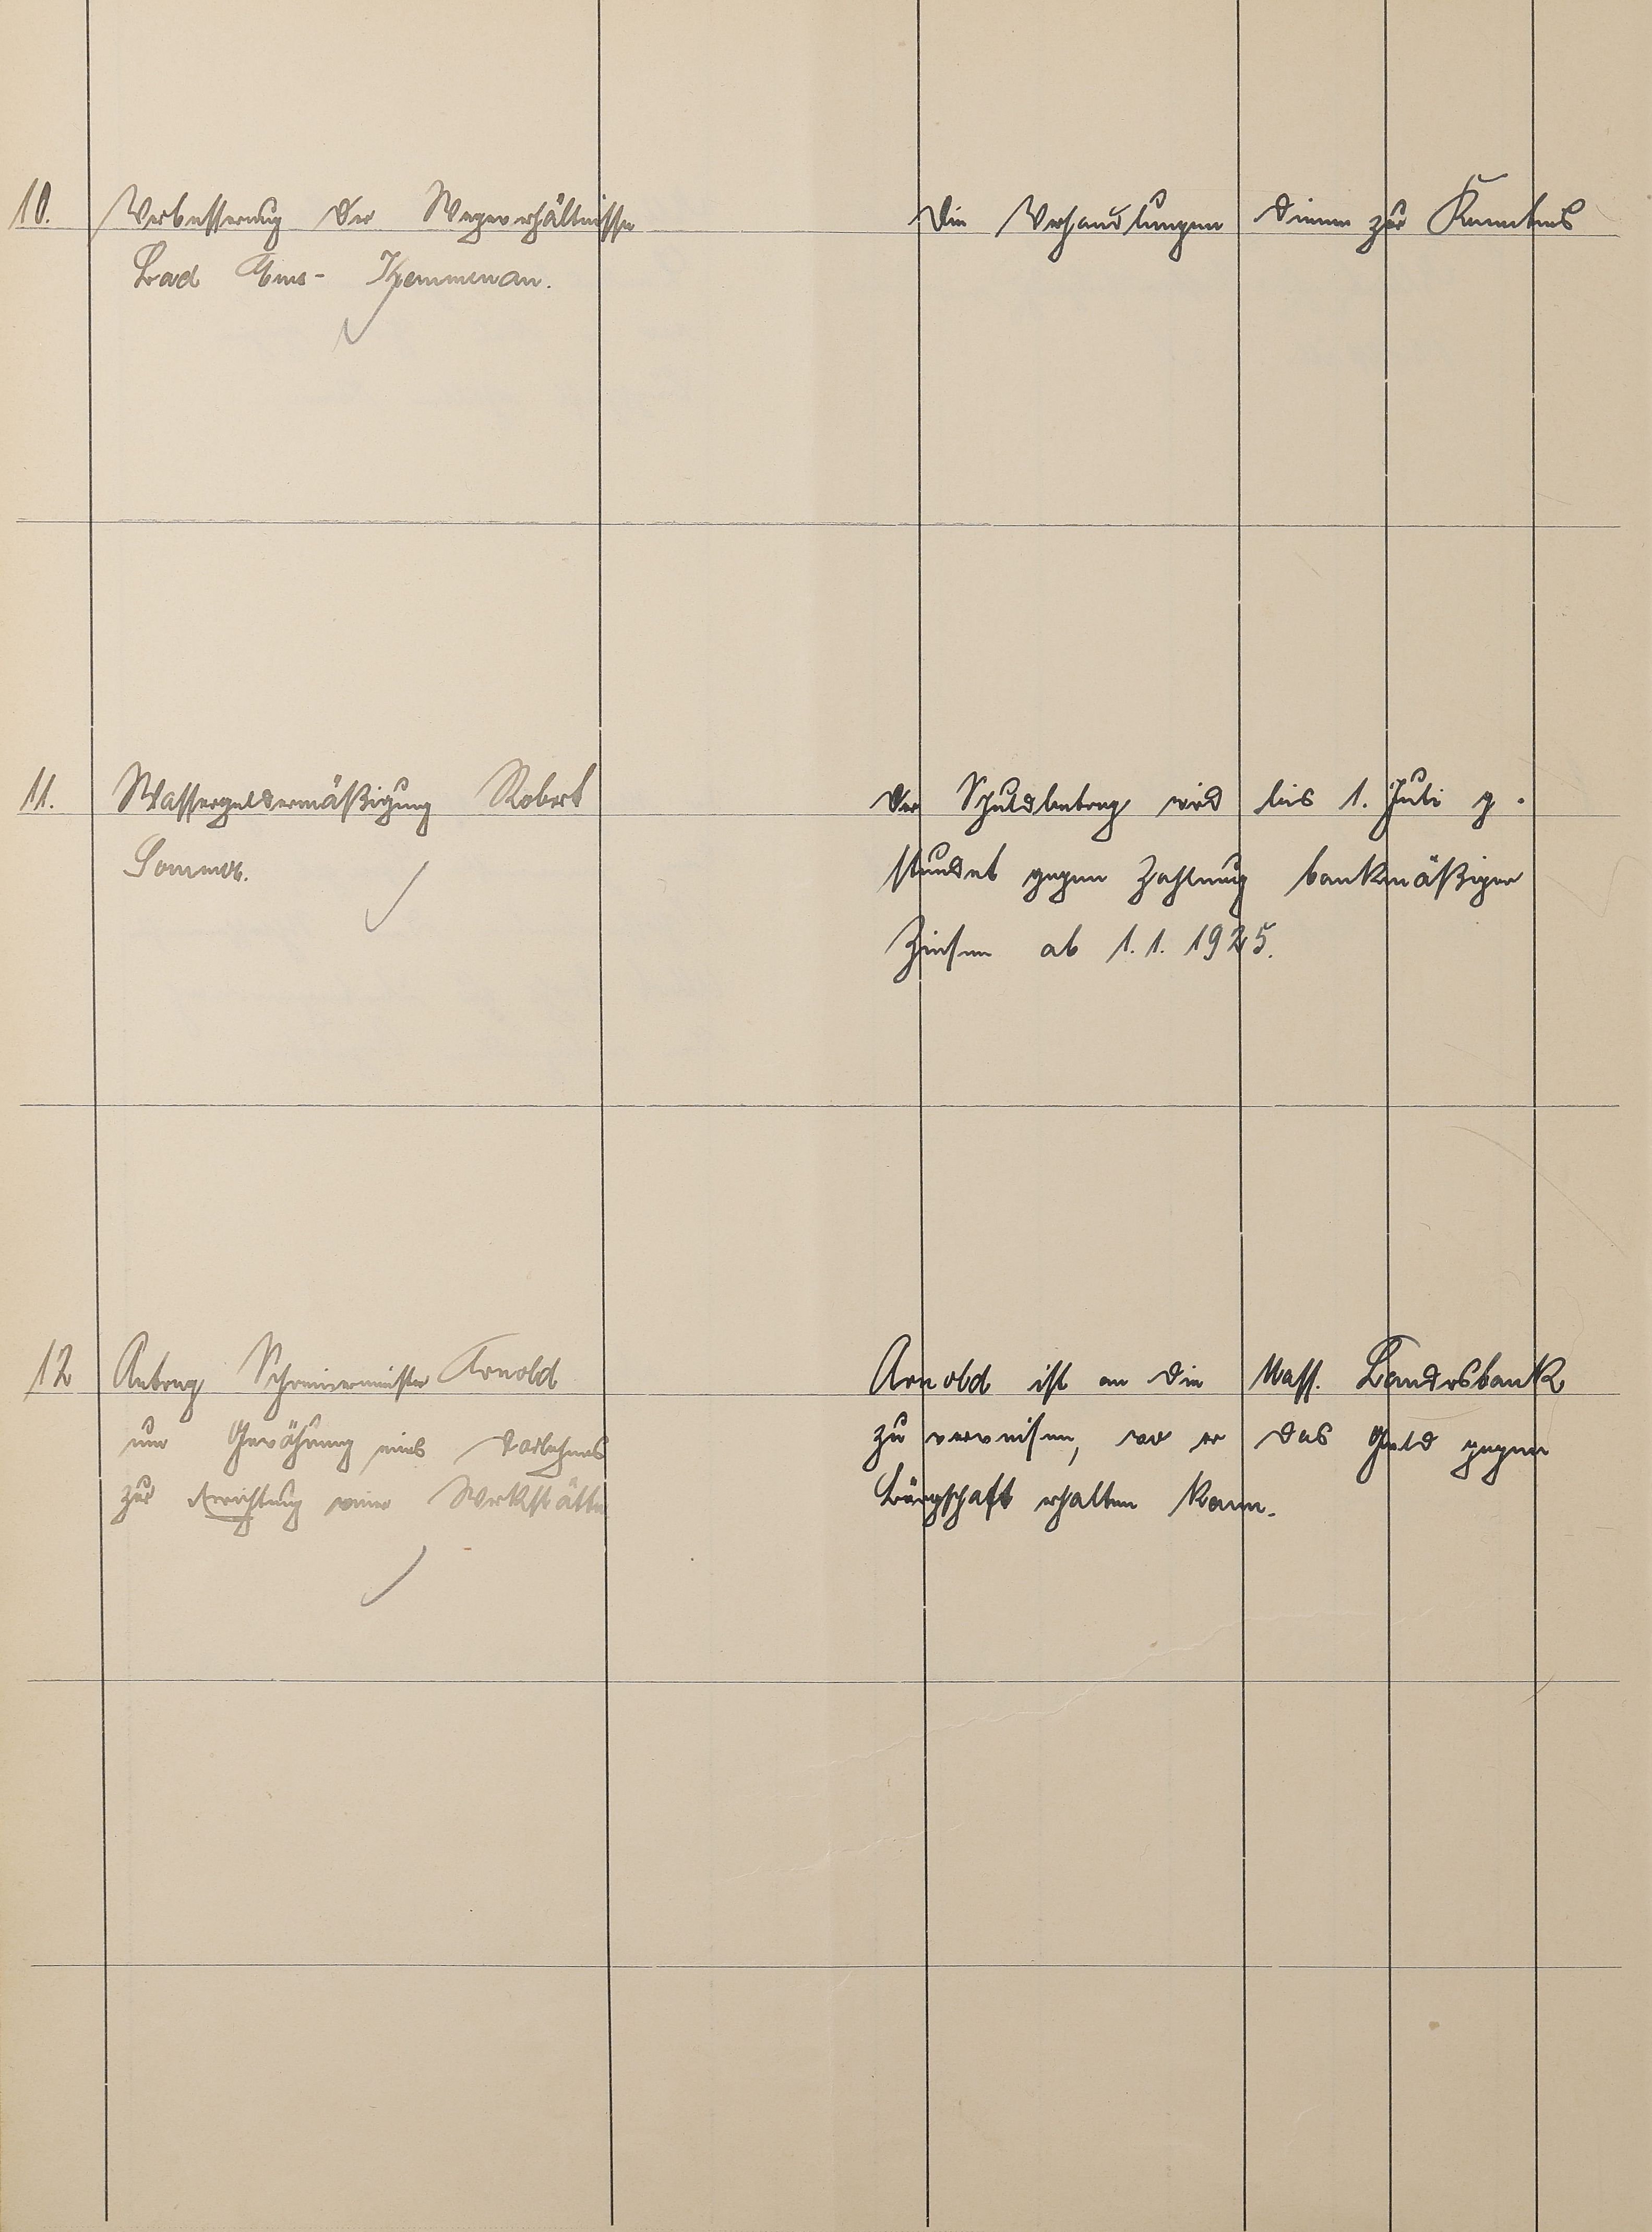 10. Verbesserung der Wegeverhältnisse
Bad Ems - Kemmenau.
Die Verhandlungen dienen zur Kenntnis
11. Wassergeldermäßigung Robert
Sommer.
Der Schuldbetrag wird bis 1. Juli g.
stundet gegen Zahlung bankmäßiger
Zinsen ab 1.1.1925.
12 Antrag Schreinermeister Arnold
um Gewährung eines Darlehens
zur Errichtung einer Werkstätte
Arnold ist an die Nass. Landesbank
zu verweisen, wo er das Geld gegen
Bürgschaft erhalten kann.